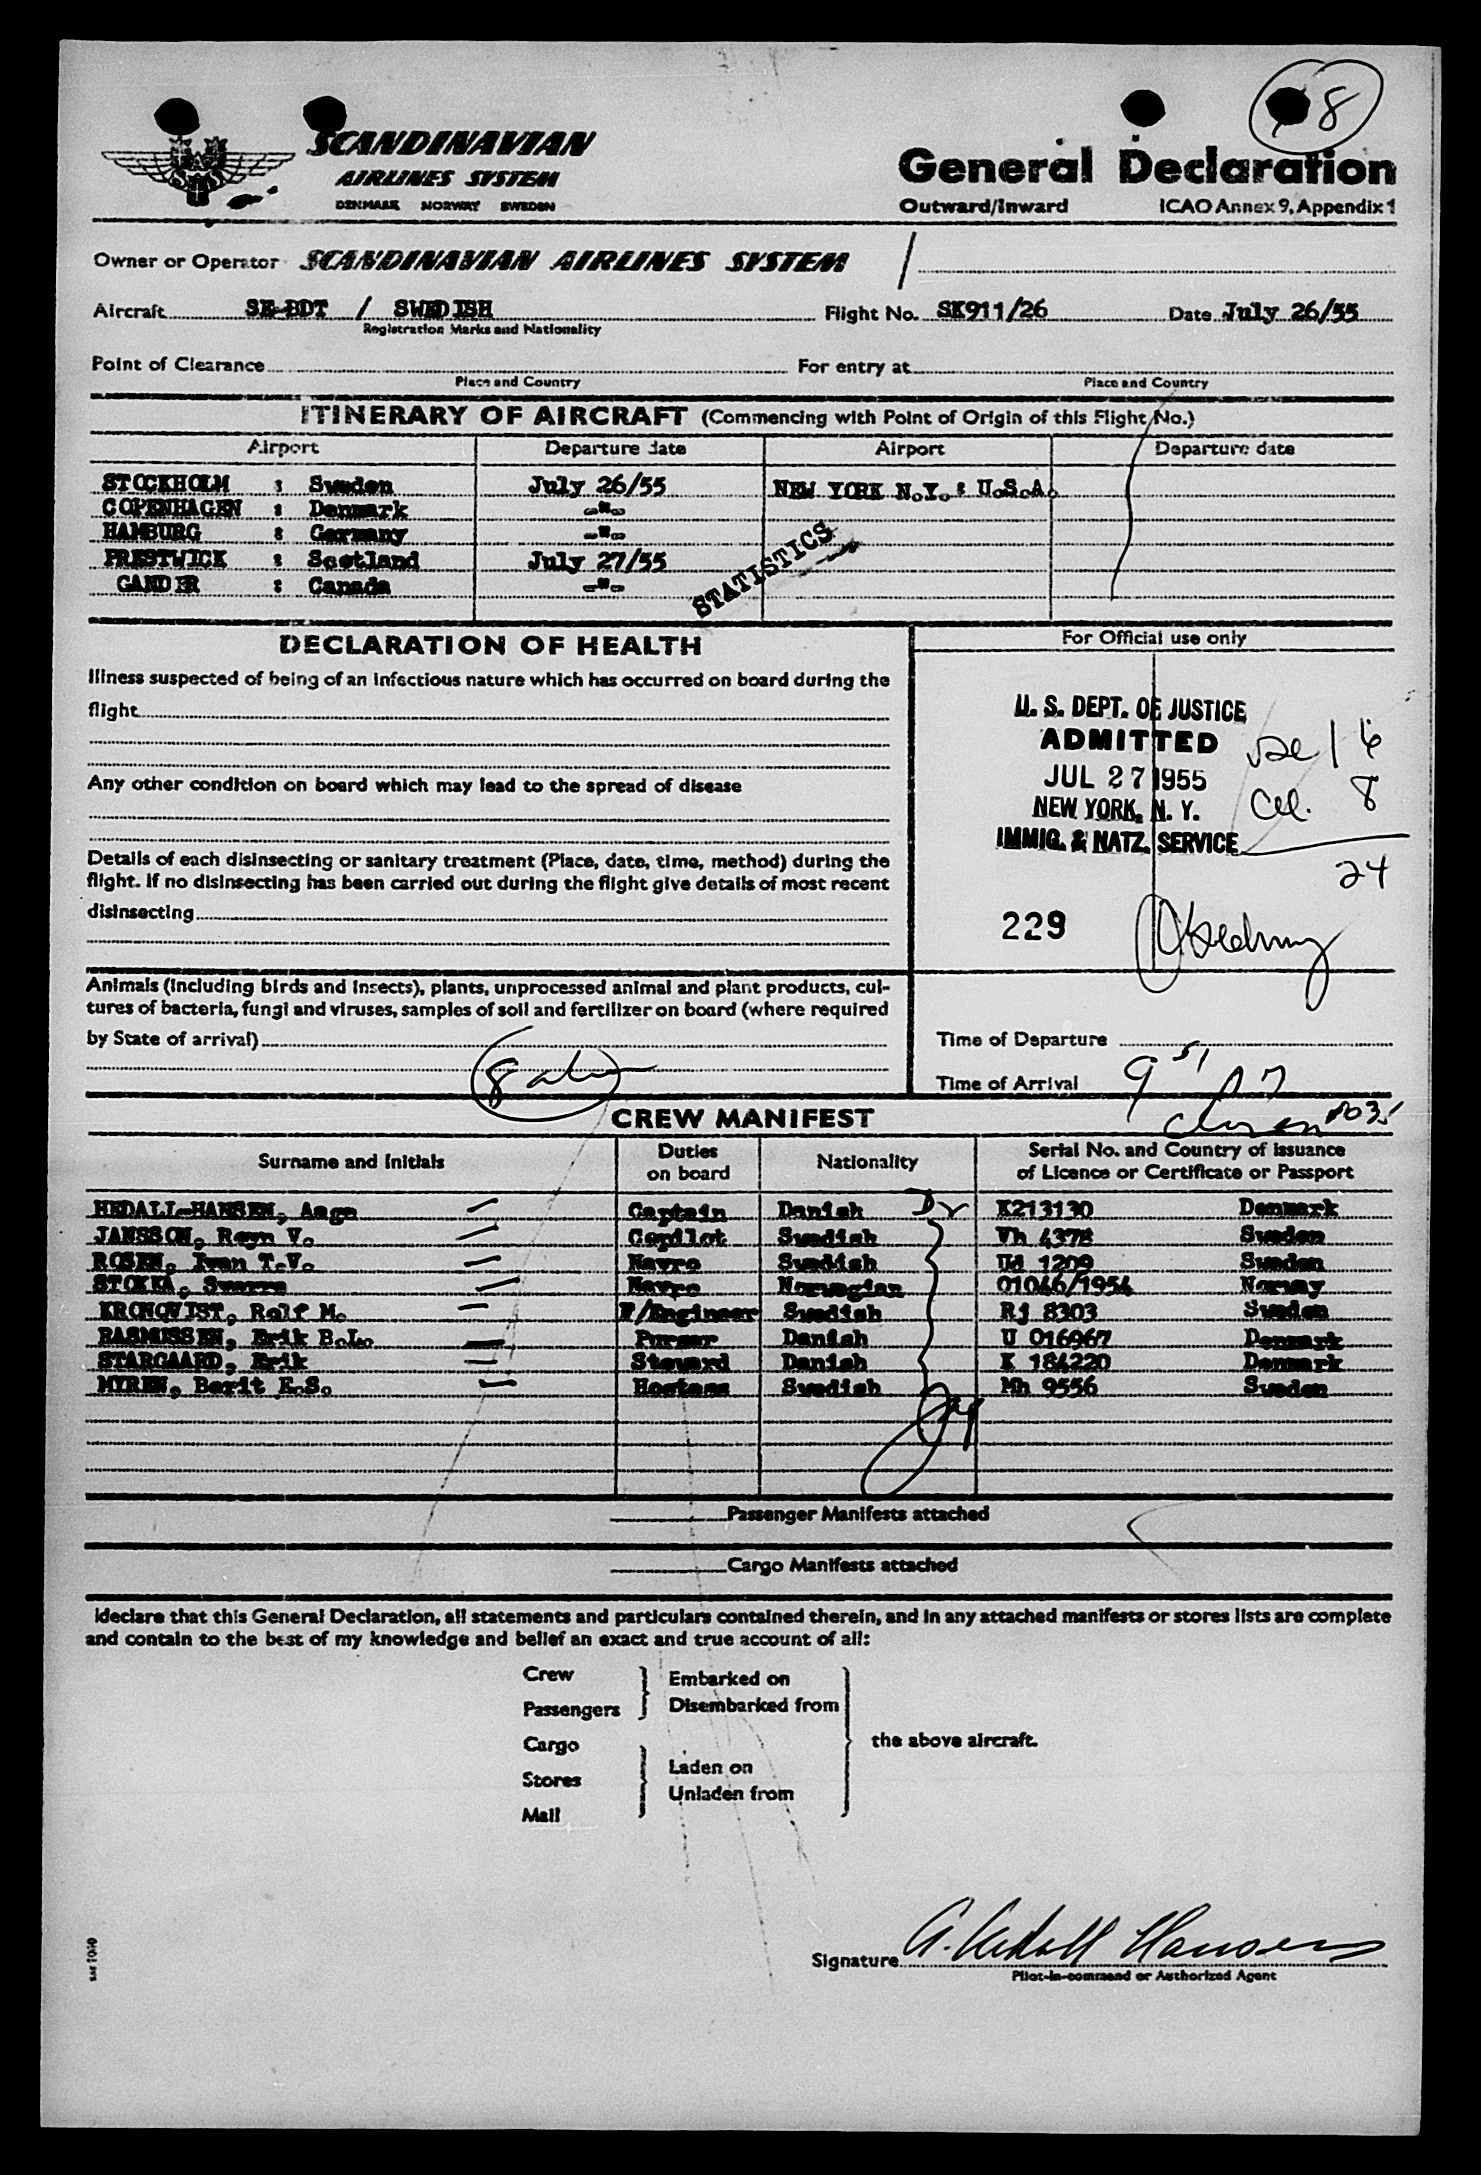 8
SCANDINAVIAN
AIRLINES SYSTEM
DENMARK NORWAY SWEDEN
General Declaration
Outward/Inward ICAO Annex 9, Appendix 1
Owner or Operator SCANDINAVIAN AIRLINES SYSTEM
Aircraft SE-BDT / SWEDISH Flight No. SK911/26 Date July 26/55
Registration Marks and Nationality
Point of Clearance For entry at
Place and Country Place and Country
ITINERARY OF AIRCRAFT (Commencing with Point of Origin of this Flight No.)
Airport Departure date Airport Departure date
STOCKHOLM : Sweden July 26/55 NEW YORK N.Y. : U.S.A.
COPENHAGEN : Denmark -"-
HAMBURG : Germany -"-
PRESTWICK : Scotland July 27/55
GANDER : Canada -"-
STATISTICS
DECLARATION OF HEALTH
Illness suspected of being of an infectious nature which has occurred on board during the
flight
Any other condition on board which may lead to the spread of disease
Details of each disinsecting or sanitary treatment (Place, date, time, method) during the
flight. If no disinsecting has been carried out during the flight give details of most recent
disinsecting
Animals (including birds and insects), plants, unprocessed animal and plant products, cul-
tures of bacteria, fungi and viruses, samples of soil and fertilizer on board (where required
by State of arrival)
For Official use only
U. S. DEPT. OF JUSTICE
ADMITTED
JUL 27 1955
NEW YORK, N. Y.
IMMIG. & NATZ. SERVICE
16
8
24
229
Time of Departure
Time of Arrival 9 51
CREW MANIFEST
Surname and Initials Duties on board Nationality Serial No. and Country of issuance of Licence or Certificate or Passport
HEDALL-HANSEN, Aage Captain Danish K213130 Denmark
JANSSON, Reyn V. Copilot Swedish Vh 4378 Sweden
ROSEN, Ivan T.V. Navro Swedish Ud 1209 Sweden
STOKKA, Sverre Navro Norwegian 01046/1954 Norway
KRONQVIST, Rolf M. F/Engineer Swedish Rj 8303 Sweden
RASMUSSEN, Erik B.L. Purser Danish U 016967 Denmark
STARGAARD, Erik Steward Danish K 184220 Denmark
MYREN, Berit E.S. Hostess Swedish Mh 9556 Sweden
Passenger Manifests attached
Cargo Manifests attached
I declare that this General Declaration, all statements and particulars contained therein, and in any attached manifests or stores lists are complete
and contain to the best of my knowledge and belief an exact and true account of all:
Crew
Passengers
Cargo
Stores
Mail
Embarked on
Disembarked from
Laden on
Unladen from
the above aircraft.
Signature A. Hedall Hansen
Pilot-in-command or Authorized Agent